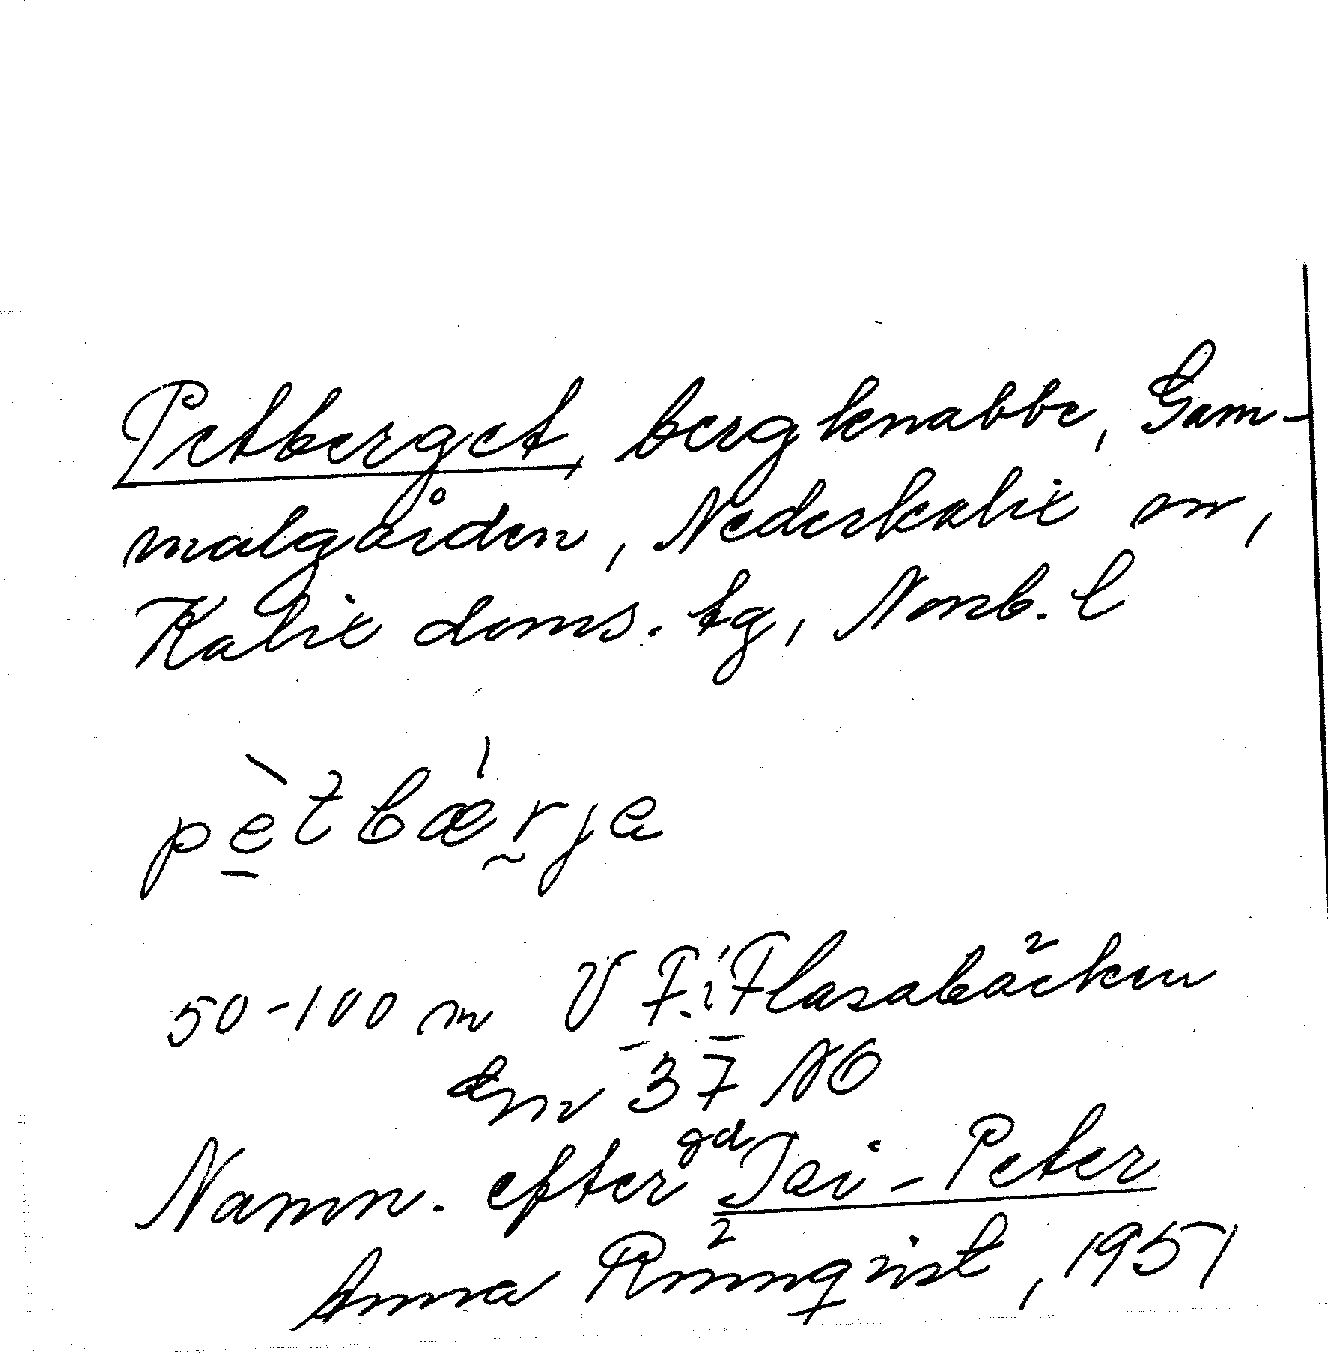 Petberget, bergknabbe, Gam-
malgården, Nederkalix sn,
Kalix doms. tg, Norrb. l
pètbæ̀rja
50-100 m V F.i. Flasabäcken
37 NO
Namn. efter gd Jai-Peter
Anna Rönnqvist, 1951